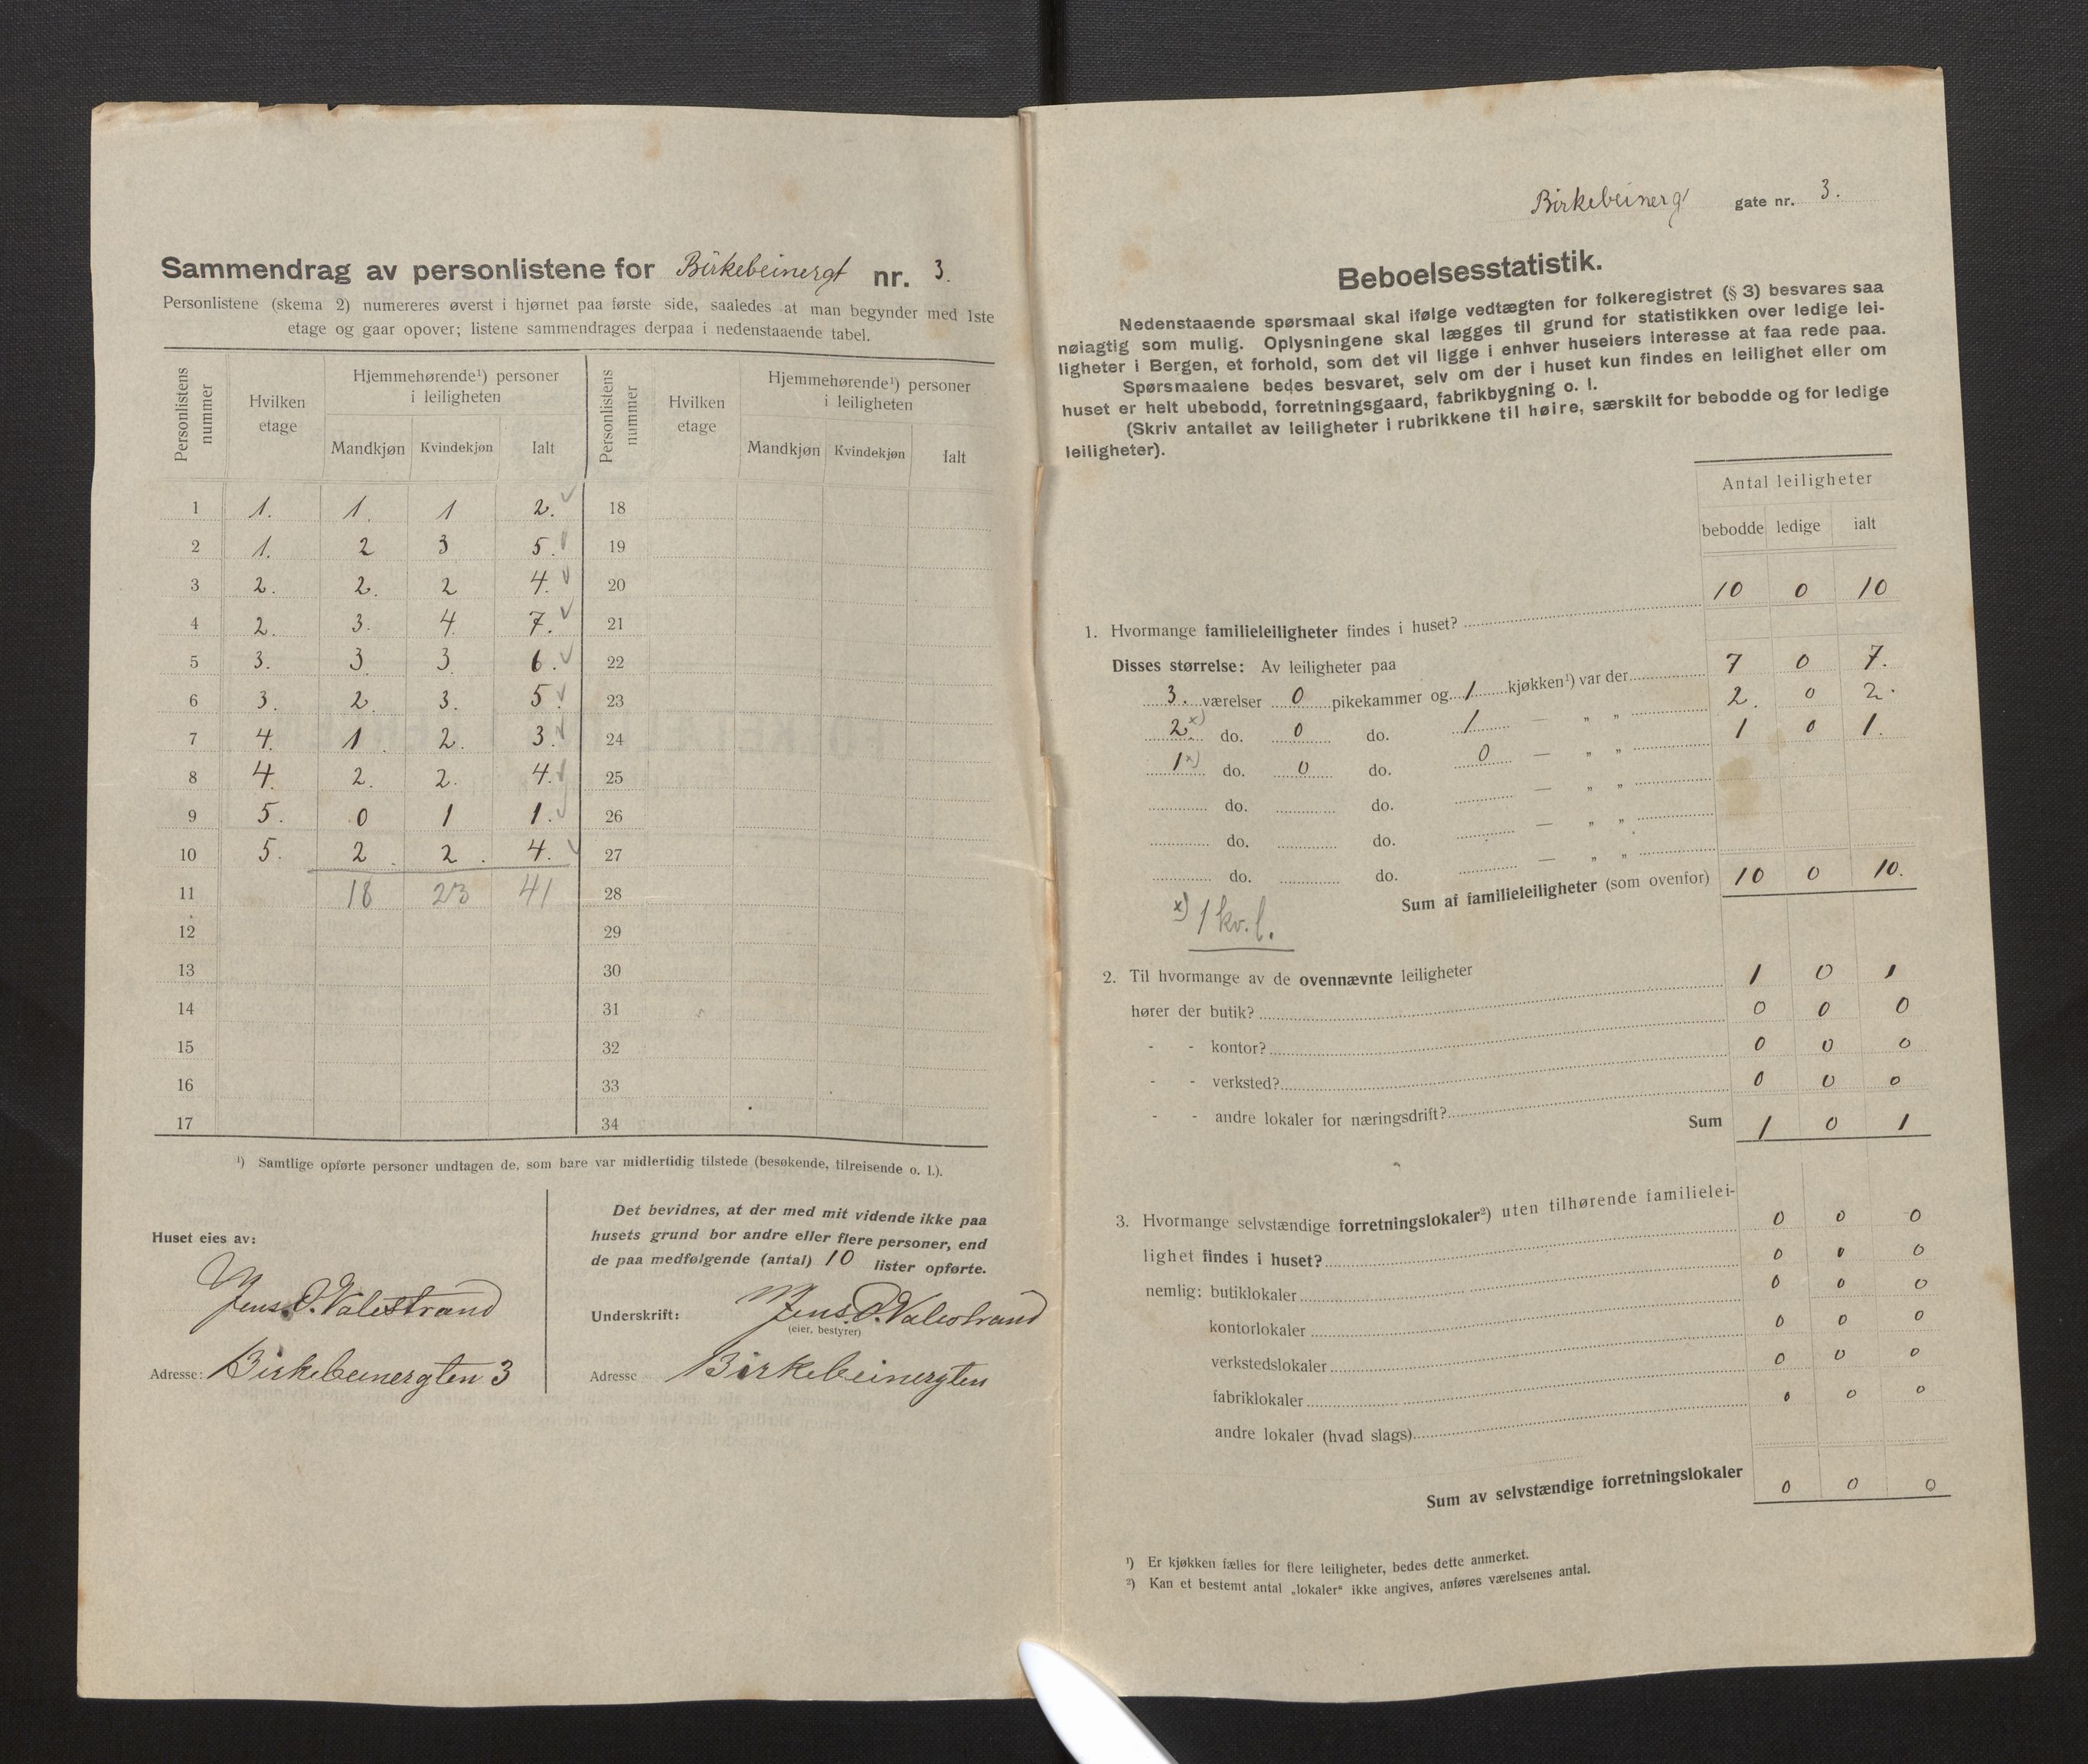 Sammendrag av personlistene for Birkebeinergt nr. 3.
Personlistene (skema 2) numereres øverst i hjørnet paa første side, saaledes at man begynder med 1ste
etage og gaar opover; listene sammendrages derpaa i nedenstaaende tabel.
Personlistens nummer | Hvilken etage | Hjemmehørende¹) personer i leiligheten | Personlistens nummer | Hvilken etage | Hjemmehørende¹) personer i leiligheten
Mandkjøn Kvindekjøn Ialt Mandkjøn Kvindekjøn Ialt
1 1. 1. 1 2. 18
2 1. 2 3 5. 19
3 2. 2. 2 4. 20
4 2. 3. 4. 7. 21
5 3. 3 3 6. 22
6 3. 2. 3. 5. 23
7 4. 1. 2. 3. 24
8 4. 2. 2. 4. 25
9 5. 0 1 1. 26
10 5. 2. 2. 4. 27
11 18 23 41 28
12 29
13 30
14 31
15 32
16 33
17 34
¹) Samtlige opførte personer undtagen de, som bare var midlertidig tilstede (besøkende, tilreisende o. l.).
Huset eies av:
Jens O. Valestrand
Adresse: Birkebeinergten 3
Det bevidnes, at der med mit vidende ikke paa
husets grund bor andre eller flere personer, end
de paa medfølgende (antal) 10 lister opførte.
Underskrift: Jens O. Valestrand
(eier, bestyrer)
Adresse Birkebeinergten
Birkebeinerg gate nr. 3.
Beboelsesstatistik.
Nedenstaaende spørsmaal skal ifølge vedtægten for folkeregistret (§ 3) besvares saa
nøiagtig som mulig. Oplysningene skal lægges til grund for statistikken over ledige lei-
ligheter i Bergen, et forhold, som det vil ligge i enhver huseiers interesse at faa rede paa.
Spørsmaalene bedes besvaret, selv om der i huset kun findes en leilighet eller om
huset er helt ubebodd, forretningsgaard, fabrikbygning o. l.
(Skriv antallet av leiligheter i rubrikkene til høire, særskilt for bebodde og for ledige
leiligheter).
Antal leiligheter
bebodde ledige ialt
1. Hvormange familieleiligheter findes i huset? 10 0 10
Disses størrelse: Av leiligheter paa
3. værelser 0 pikekammer og 1 kjøkken¹) var der 7 0 7.
2 x) do. 0 do. 1 — „ „ 2. 0 2.
1 x) do. 0 do. 0 — „ „ 1 0 1.
do. do. — „ „
do. do. — „ „
do. do. — „ „
Sum af familieleiligheter (som ovenfor) 10 0 10.
x) 1 kv. l.
2. Til hvormange av de ovennævnte leiligheter
hører der butik? 1 0 1
- - kontor? 0 0 0
- - verksted? 0 0 0
- - andre lokaler for næringsdrift? 0 0 0
Sum 1 0 1
3. Hvormange selvstændige forretningslokaler²) uten tilhørende familielei-
lighet findes i huset? 0 0 0
nemlig: butiklokaler 0 0 0
kontorlokaler 0 0 0
verkstedslokaler 0 0 0
fabriklokaler 0 0 0
andre lokaler (hvad slags) 0 0 0
Sum av selvstændige forretningslokaler 0 0 0
¹) Er kjøkken fælles for flere leiligheter, bedes dette anmerket.
²) Kan et bestemt antal „lokaler“ ikke angives, anføres værelsenes antal.